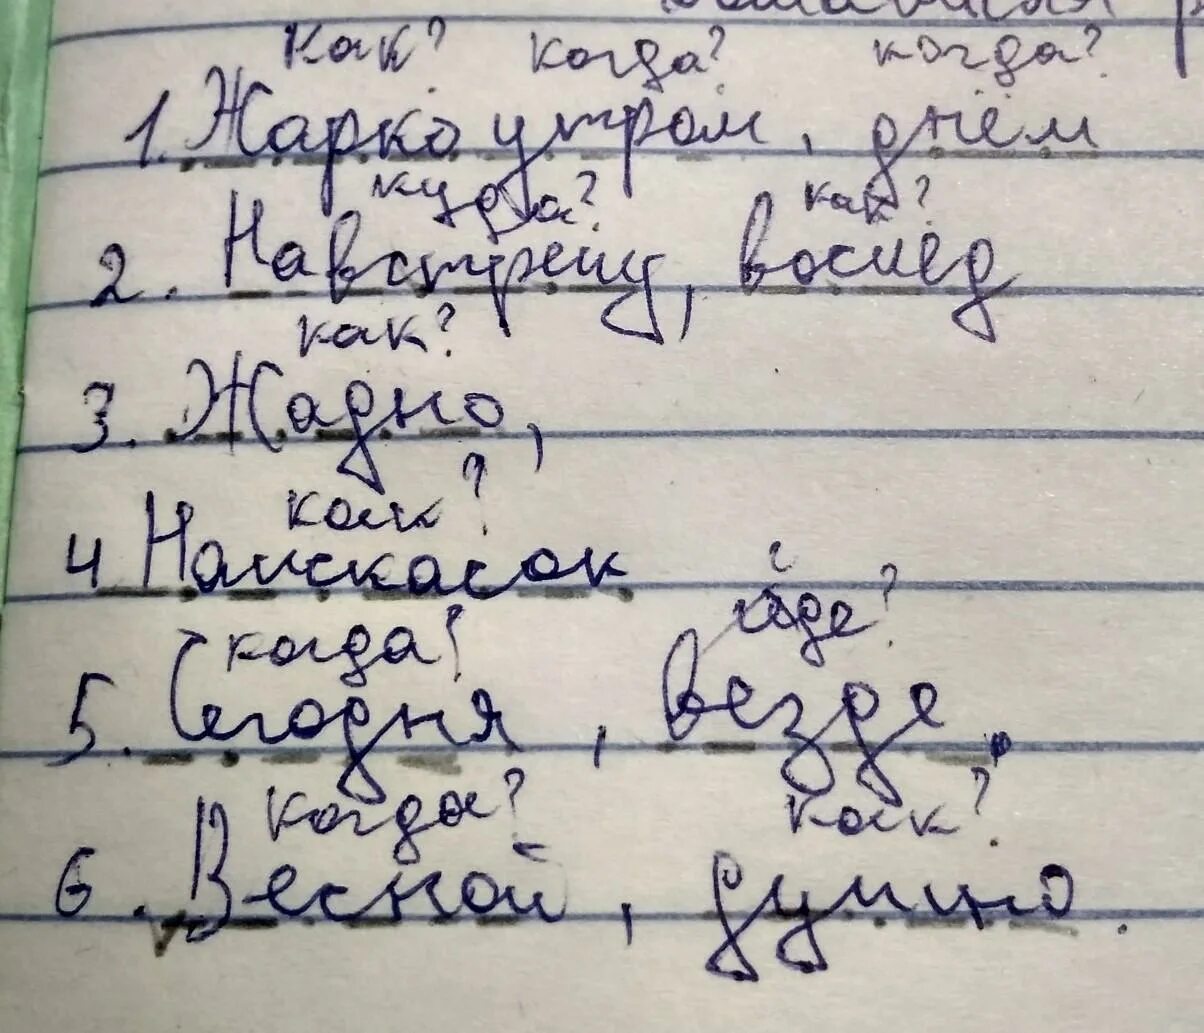 как? когда? когда?
1. Жарко утром, днём
куда? как?
2. Навстречу, вослед
как?
3. Жадно,
как?
4 Наискасок
когда? где?
5. Сегодня, везде.
когда? как?
6. Весной, душно.